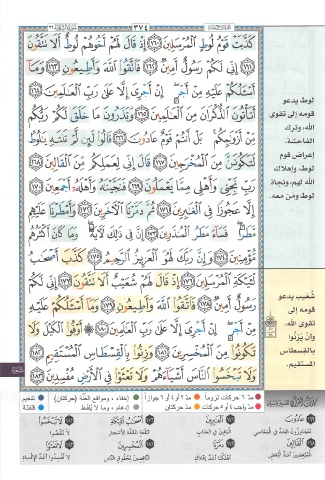 ٣٧٤
كَذَّبَتْ قَوْمُ لُوطٍ ٱلْمُرْسَلِينَ ١٦٠ إِذْ قَالَ لَهُمْ أَخُوهُمْ لُوطٌ أَلَا تَتَّقُونَ
١٦١ إِنِّى لَكُمْ رَسُولٌ أَمِينٌ ١٦٢ فَٱتَّقُوا۟ ٱللَّهَ وَأَطِيعُونِ ١٦٣ وَمَآ
أَسْـَٔلُكُمْ عَلَيْهِ مِنْ أَجْرٍ إِنْ أَجْرِىَ إِلَّا عَلَىٰ رَبِّ ٱلْعَـٰلَمِينَ ١٦٤
أَتَأْتُونَ ٱلذُّكْرَانَ مِنَ ٱلْعَـٰلَمِينَ ١٦٥ وَتَذَرُونَ مَا خَلَقَ لَكُمْ رَبُّكُم
مِّنْ أَزْوَٰجِكُم بَلْ أَنتُمْ قَوْمٌ عَادُونَ ١٦٦ قَالُوا۟ لَئِن لَّمْ تَنتَهِ يَـٰلُوطُ
لَتَكُونَنَّ مِنَ ٱلْمُخْرَجِينَ ١٦٧ قَالَ إِنِّى لِعَمَلِكُم مِّنَ ٱلْقَالِينَ ١٦٨
رَبِّ نَجِّنِى وَأَهْلِى مِمَّا يَعْمَلُونَ ١٦٩ فَنَجَّيْنَـٰهُ وَأَهْلَهُۥٓ أَجْمَعِينَ ١٧٠
إِلَّا عَجُوزًا فِى ٱلْغَـٰبِرِينَ ١٧١ ثُمَّ دَمَّرْنَا ٱلْـَٔاخَرِينَ ١٧٢ وَأَمْطَرْنَا عَلَيْهِم
مَّطَرًا فَسَآءَ مَطَرُ ٱلْمُنذَرِينَ ١٧٣ إِنَّ فِى ذَٰلِكَ لَـَٔايَةً وَمَا كَانَ أَكْثَرُهُم
مُّؤْمِنِينَ ١٧٤ وَإِنَّ رَبَّكَ لَهُوَ ٱلْعَزِيزُ ٱلرَّحِيمُ ١٧٥ كَذَّبَ أَصْحَـٰبُ
لْـَٔيْكَةِ ٱلْمُرْسَلِينَ ١٧٦ إِذْ قَالَ لَهُمْ شُعَيْبٌ أَلَا تَتَّقُونَ ١٧٧ إِنِّى لَكُمْ
رَسُولٌ أَمِينٌ ١٧٨ فَٱتَّقُوا۟ ٱللَّهَ وَأَطِيعُونِ ١٧٩ وَمَآ أَسْـَٔلُكُمْ عَلَيْهِ
مِنْ أَجْرٍ إِنْ أَجْرِىَ إِلَّا عَلَىٰ رَبِّ ٱلْعَـٰلَمِينَ ١٨٠ أَوْفُوا۟ ٱلْكَيْلَ وَلَا
تَكُونُوا۟ مِنَ ٱلْمُخْسِرِينَ ١٨١ وَزِنُوا۟ بِٱلْقِسْطَاسِ ٱلْمُسْتَقِيمِ ١٨٢
وَلَا تَبْخَسُوا۟ ٱلنَّاسَ أَشْيَآءَهُمْ وَلَا تَعْثَوْا۟ فِى ٱلْأَرْضِ مُفْسِدِينَ ١٨٣
لوط يدعو
قومه إلى تقوى
الله، وترك
الفاحشة.
إعراض قوم
لوط، وإهلاك
الله لهم، ونجاة
لوط ومن معه.
شعيب يدعو
قومه إلى
تقوى الله،
وأن يزنوا
بالقسطاس
المستقيم.
مد ٦ حركات لزوماً
مد ٢ أو ٤ أو ٦ جوازاً
إخفاء، ومواقع الغنة (حركتان)
تفخيم
مد واجب ٤ أو ٥ حركات
مد حركتان
إدغام، وما لا يُلفظ
قلقلة